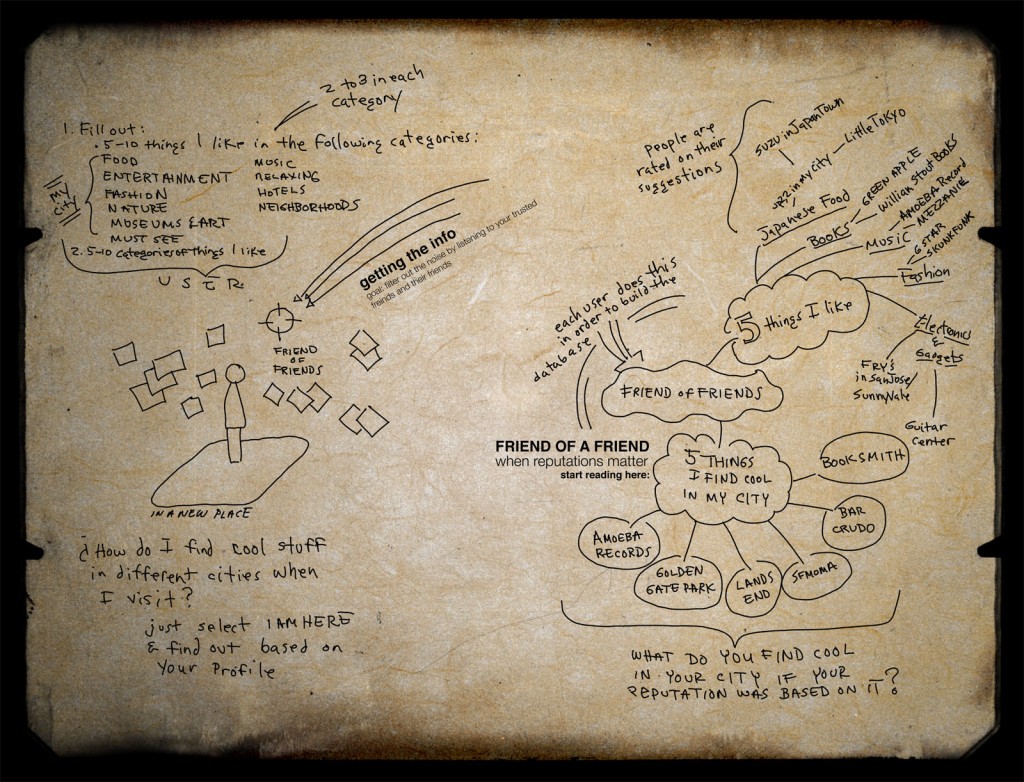 2 to 3 in each
category
1. Fill out:
. 5-10 things I like in the following categories:
MY
City
FOOD
ENTERTAINMENT
FASHION
NATURE
MUSEUMS & ART
MUST SEE
MUSIC
RELAXING
HOTELS
NEIGHBORHOODS
2. 5-10 categories of things I like
USER
getting the info
goal: filter out the noise by listening to your trusted
freinds and their friends
FRIEND
OF
FRIENDS
IN A NEW PLACE
¿How do I find cool stuff
in different cities when
I visit?
just select I AM HERE
& find out based on
Your Profile
People are
rated on their
suggestions
SUZU in JapanTown
Little Tokyo
in my city
Japanese Food
Books
GREEN APPLE
William Stout Books
Music
AMOEBA Record
MEZZANIE
Fashion
G STAR
SKUNKFUNK
5 things I like
Electronics
&
Gadgets
FRY's
in San Jose/
SunnyVale
Guitar
Center
each user does this
in order to build the
database
FRIEND OF FRIENDS
FRIEND OF A FRIEND
when reputations matter
start reading here:
5 THINGS
I FIND COOL
IN MY CITY
BOOKSMITH
BAR
CRUDO
SFMOMA
LANDS
END
GOLDEN
GATE PARK
AMOEBA
RECORDS
WHAT DO YOU FIND COOL
IN YOUR CITY IF YOUR
REPUTATION WAS BASED ON IT?